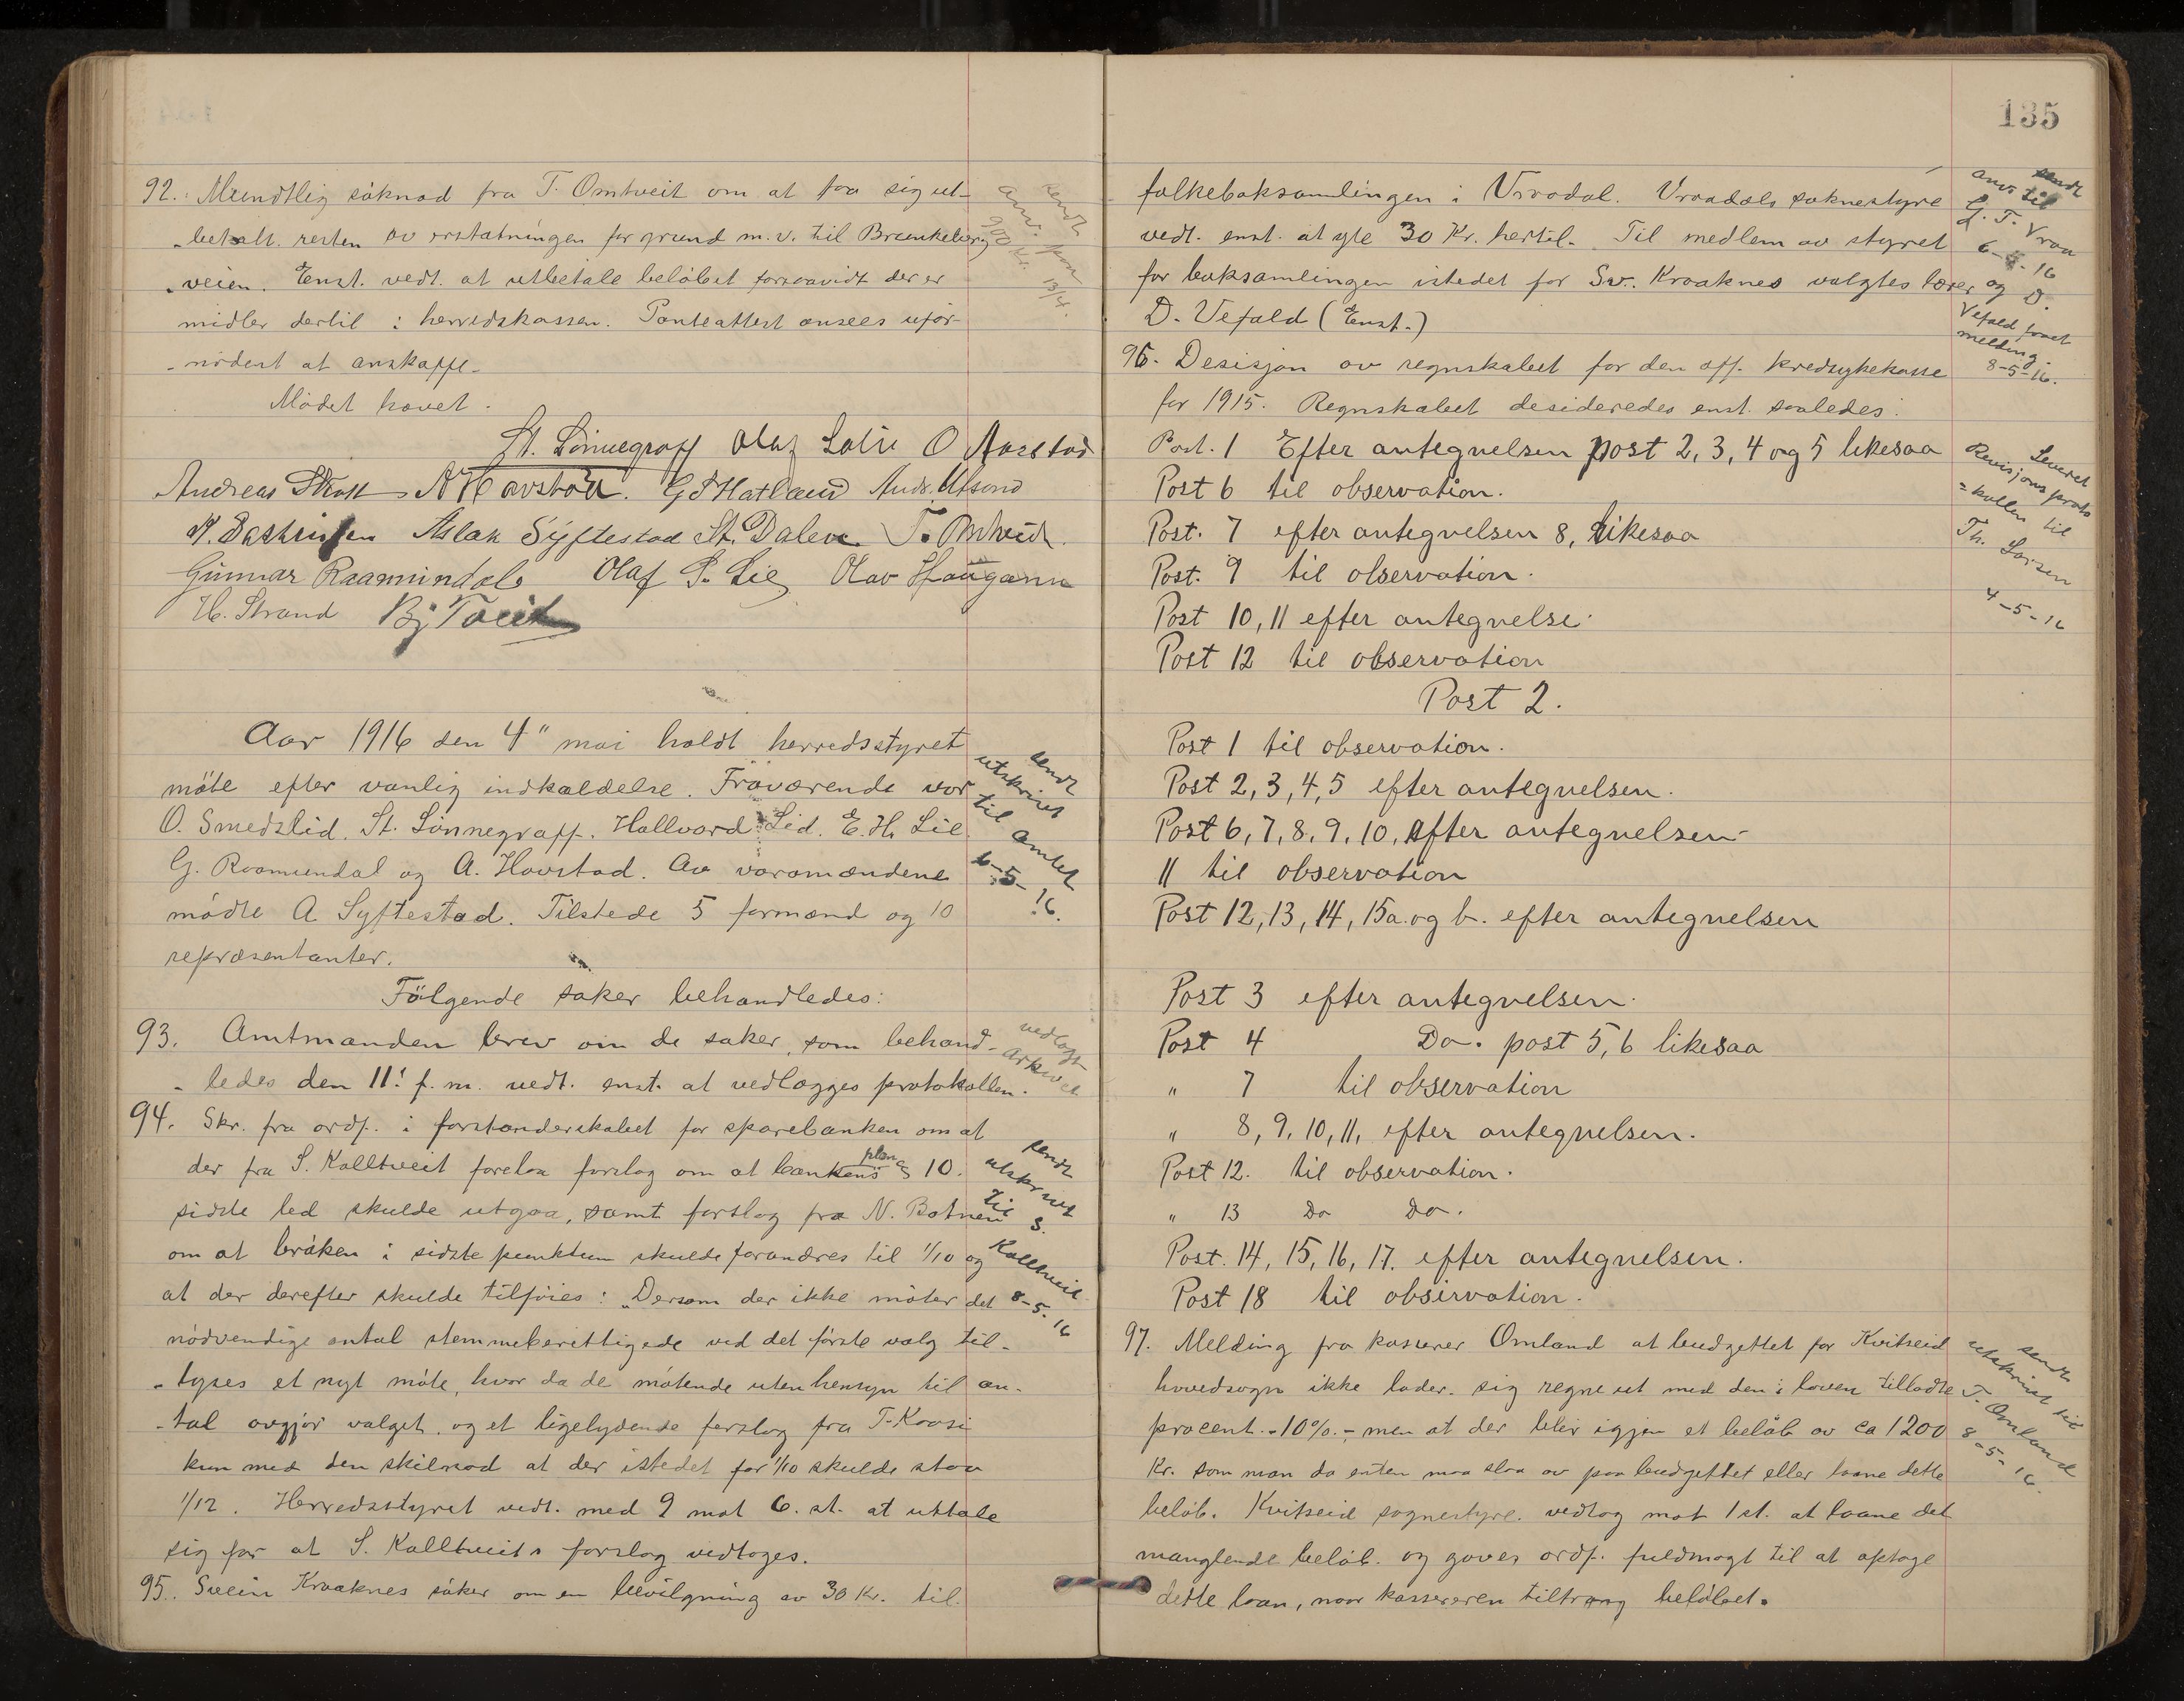 92. Mundtlig söknad fra T. Omtveit om at faa sig ut-
-betalt resten av erstatningen for grund m.v. til Brunkeberg-
-veien. Enst. vedt. at utbetale belöbet forsaavidt der er
midler dertil i herredskassen. Panteattest ansees ufor-
-nödent at anskaffe.
Mödet hævet.
sendt
anv. paa
900 kr. 13/4.
St. Lönnegraff Olaf O Aarstad
Andreas A Havstad. G S Hatland Andr. Utsond
Aslak Syftestad St. Dalen T. Omtveit.
Gunnar Raamundal Olaf S. Lie Olav Haugann
H. Strand Bj Tveit
Aar 1916 den 4" mai holdt herredsstyret
möte efter vanlig indkaldelse. Fraværende var
O. Smedslid, St. Lönnegraff. Hallvard Lid. E. H. Lie
G. Raamundal og A. Havstad. Av varamændene
mödte A Syftestad. Tilstede 5 formænd og 10
repræsentanter.
sendt
utskrivt
til amtet
6-5-16.
Fölgende saker behandledes:
93. Amtmanden brev om de saker, som behand-
-ledes den 11! f.m. vedt. enst. at vedlægges protokollen.
vedlagt
Arkivet
94. Skr. fra ordf. i forstanderskabet for sparebanken om at
der fra S. Kalltveit forelaa forslag om at bankens plan § 10.
sidste led skulde utgaa, samt forslag fra N. Botnen
om at bröken i sidste punktum skulde forandres til 1/10 og
at der derefter skulde tilföies: "Dersom der ikke möter det
nödvendige antal stemmeberettigede ved det förste valg til-
-lyses et nyt möte, hvor da de mötende uten hensyn til an-
-tal avgjör valget. og et ligelydende forslag fra T. Kaasi
kun med den skilnad at der istedet for 1/10 skulde staa
1/12. Herredsstyret vedt. med 9 mot 6. st. at uttale
sig for at S. Kalltveits forslag vedtoges.
sendt
utskrivt
til S.
Kalltveit
8-5-16
95. Svein Kraaknes söker om en bevilgning av 30 Kr. til
135
folkeboksamlingen i Vraadal. Vraadals soknestyre
vedt. enst. at yte 30 Kr. hertil. Til medlem av styret
for boksamlingen istedet for Sv. Kraaknes valgtes lærer
D. Vefald (Enst.)
sendt
anv. til
G. T. Vraa
6-5-16
og D.
Vefald sendt
melding.
8-5-16.
96. Desisjon av regnskabet for den off. kredssykekasse
for 1915. Regnskabet desideredes enst. saaledes:
Post. 1 Efter antegnelsen post 2, 3, 4 og 5 likesaa
Post 6 til observation.
Post. 7 efter antegnelsen 8, likesaa
Post. 9 til observation.
Post 10, 11 efter antegnelse.
Post 12 til observation
Leveret
Revisjons proto
=kollen til
Th. Larsen
4-5-16
Post 2.
Post 1 til observation.
Post 2, 3, 4, 5 efter antegnelsen.
Post 6, 7, 8, 9, 10, efter antegnelsen
11 til observation
Post 12, 13, 14, 15a. og b. efter antegnelsen
Post 3 efter antegnelsen.
Post 4 Do. post 5, 6 likesaa
" 7 til observation
" 8, 9, 10, 11, efter antegnelsen.
Post 12. til observation.
" 13 Do Do.
Post. 14, 15, 16, 17. efter antegnelsen.
Post 18 til observation.
97. Melding fra kasserer Omland at budgettet for Kvitseid
hovedsogn ikke lader sig regne ut med den i loven tilladte
procent. - 10%. - men at der blir igjen et beløb av ca 1200
Kr. som man da enten maa slaa av paa budgettet eller laane dette
belöb. Kvitseid sognestyre. vedtog mot 1 st. at laane det
manglende belöb. og gaves ordf. fuldmagt til at optage
dette laan, naar kassereren tiltrang belöbet.
sendt
utskrivt til
T. Omland
8-5-16.